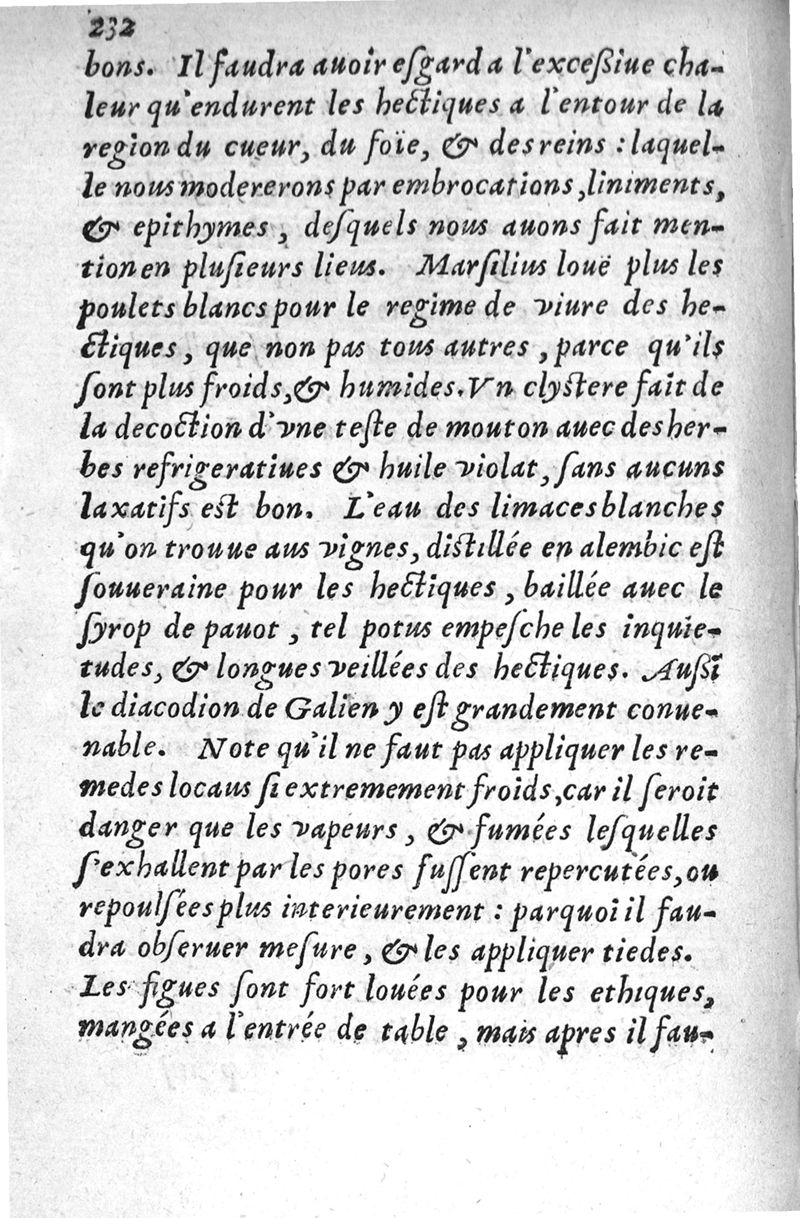 232
bons. Il faudra auoir eſgard a l'exceßiue cha-
leur qu'endurent les hectiques a l'entour de la
region du cueur, du foïe, & des reins : laquel-
le nous modererons par embrocations, liniments,
& epithymes, deſquels nous auons fait men-
tion en pluſieurs lieus. Marſilius louë plus les
poulets blancs pour le regime de viure des he-
ctiques, que non pas tous autres, parce qu'ils
ſont plus froids, & humides. Vn clyſtere fait de
la decoction d'vne teſte de mouton auec des her-
bes refrigeratiues & huile violat, ſans aucuns
laxatifs eſt bon. L'eau des limaces blanches
qu'on trouue aus vignes, diſtillée en alembic eſt
ſouueraine pour les hectiques, baillée auec le
ſyrop de pauot, tel potus empeſche les inquie-
tudes, & longues veillées des hectiques. Außi
le diacodion de Galien y eſt grandement conue-
nable. Note qu'il ne faut pas appliquer les re-
medes locaus ſi extremement froids, car il ſeroit
danger que les vapeurs, & fumées leſquelles
ſ'exhallent par les pores fuſſent repercutées, ou
repoulſées plus interieurement : parquoi il fau-
dra obſeruer meſure, & les appliquer tiedes.
Les figues ſont fort louées pour les ethiques,
mangées a l'entrée de table, mais apres il fau-